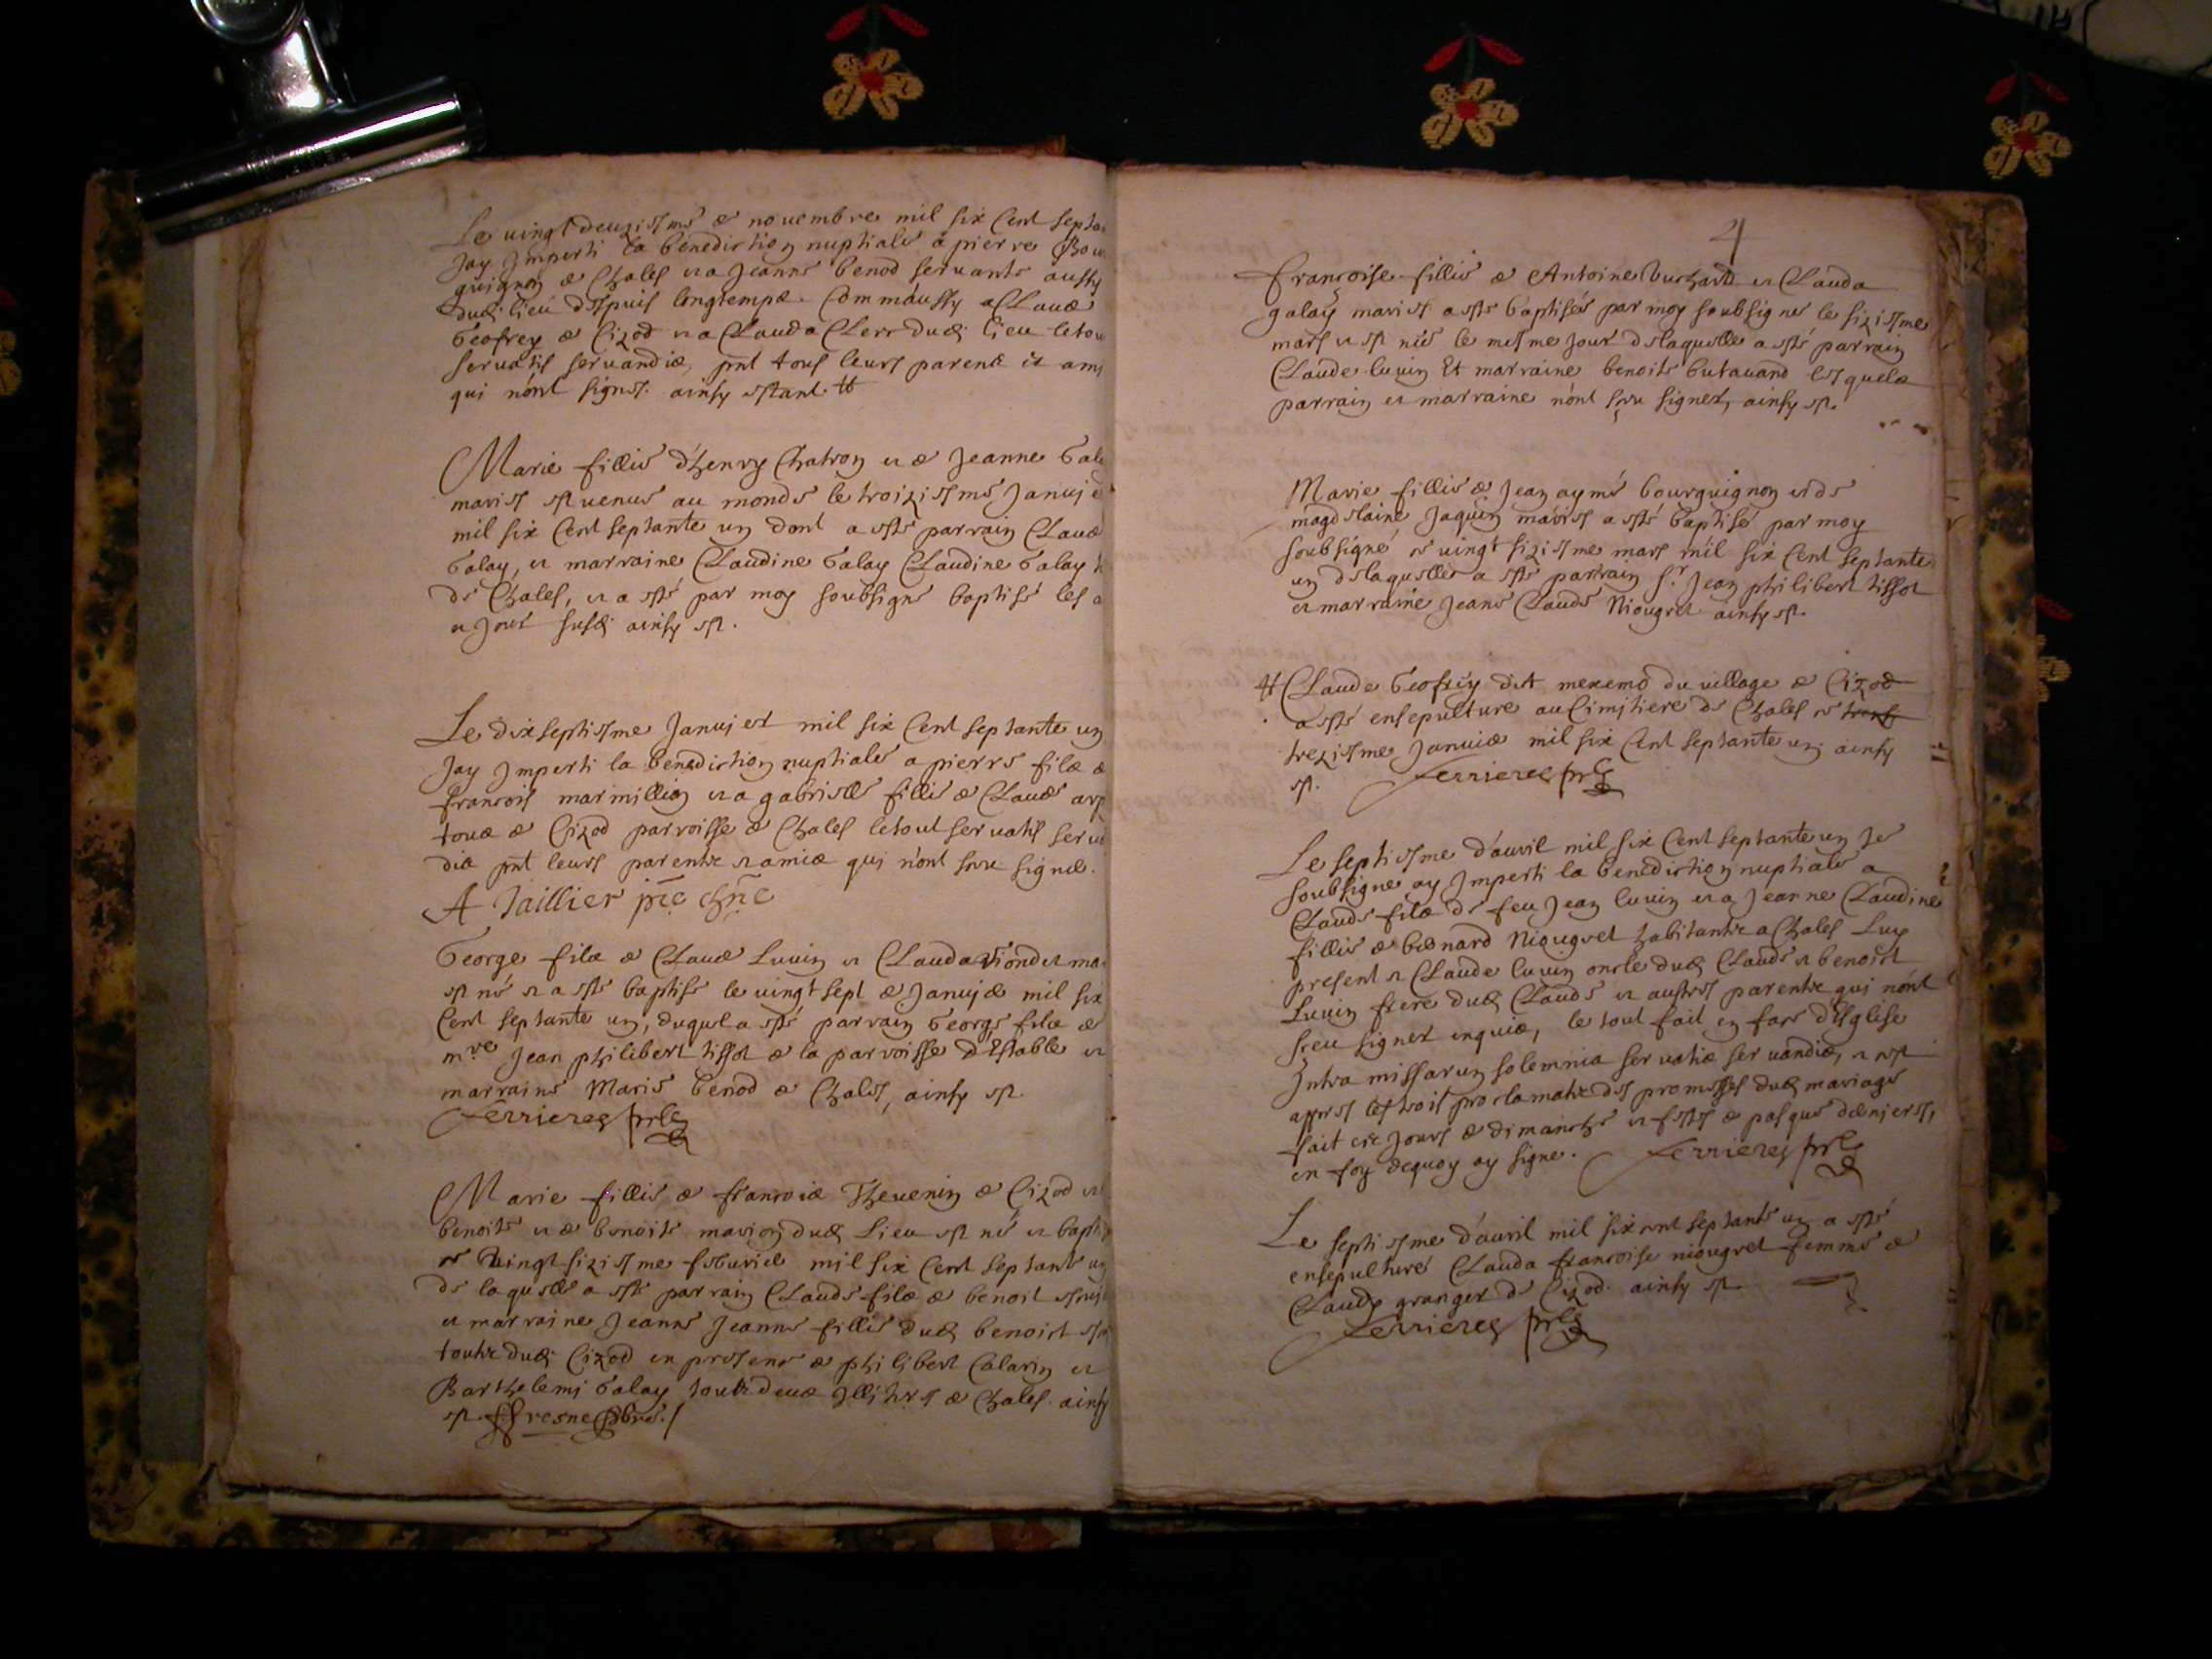 Le vingt deuziesme de novembre mil six Cent septan
Jay Imperti la benediction nuptiale a pierre Bour
guignon de Chales et a Jeanne benod servante aussy
dud. lieu despuis longtemps. Comm'aussy a Claude
Geofrey de Cizod et a Clauda Clerc dud. lieu letou
servatis servandis, pnt tous leurs parents et amis
qui n'ont signes. ainsy estant
Marie fillie d'henry Chatron et de Jeanne Gala
maries est venue au monde le troiziesme Janvie
mil six Cent septante un dont a esté parrain Claude
Galay, et marraine Claudine Galay Claudine Galay
de Chales, et a esté par moy soubsigné baptisé les
et Jour susd. ainsy est.
Le dixseptiesme Janvier mil six Cent septante un
Jay Imperti la benediction nuptiale a pierre filz de
francois marmillion et a gabrielle fillie de Claude
tous de Cizod parroisse de Chales letout servatis serv
dis pnt leurs parents et amis qui n'ont sceu signer.
A Taillier pre
George filz de Claude Luvin et Clauda Viondet ma
est né et a esté baptisé le vingt sept de Janvier mil six
Cent septante un, duquel a esté parrain George filz de
mre Jean philibert tissot de la parroisse d'Estable et
marraine Marie benod de Chales, ainsy est
Ferrieres
Marie fillie de francois Thevenin de Cizod et
benoite et de benoite marion dud. Lieu est né et bapti
ce Vingt siziesme febvrier mil six Cent septante un
de laquelle a esté parrain Claude filz de benoit
et marraine Jeanne Jeanne fillie dud. benoict
touts dud. Cizod en presence de philibert Calarin et
Barthelemi Galay touts deux Illitres de Chales. ainsy
est
4
francoise fillie de Antoine buchard et Clauda
galay maries a esté baptisée par moy soubsigné le siziesme
mars et est née le mesme Jour delaquelle a esté parrain
Claude luvin Et marraine benoite butavand lesquels
parrain et marraine n'ont sceu signer, ainsy est.
Marie fillie de Jean aymé bourguignon et de
magdelaine Jaquin maries a esté baptisé par moy
soubsigné ce vingt siziesme mars mil six Cent septante
un delaquelle a esté parrain sr. Jean philibert tissot
et marraine Jeane Claude Niogret ainsy est.
Claude Geofrey dit meremo du village de Cizod
a esté ensepulture au Cimitiere de Chales ce
treziesme Janvier mil six Cent septante un ainsy
est. Ferrieres
Le septiesme d'avril mil six Cent septante un Je
soubsigne ay Imperti la benediction nuptiale a
Claude filz de feu Jean luvin et a Jeanne Claudine
fillie de bernard Niogret habitants a Chales Luy
present et Claude luvin oncle dud. Claude et benoict
Luvin frere dud. Claude et autres parents qui n'ont
sceu signer enquis, le tout fait en face d'Esglise
Intra missarum solemnia servatis servandis, et ce
appres les trois proclamats des promesses dud. mariage
fait ces Jours de dimanche et festes de pasque derniers,
en foy dequoy ay signe. Ferrieres
Le septiesme d'avril mil six cent septante un a esté
ensepulturé Clauda francoise niogret femme de
Claude granger de Cizod. ainsy est
Ferrieres